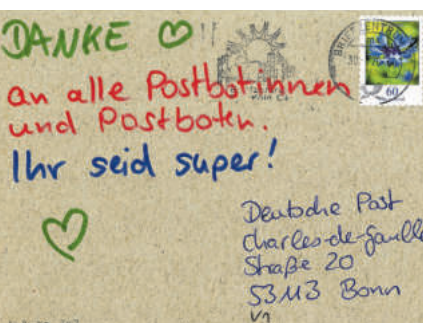 DANKE
an alle Postbotinnen
und Postboten.
Ihr seid super!
BRIEFZENTRUM
60
Deutsche Post
Charles-de-Gaulle
Straße 20
53113 Bonn